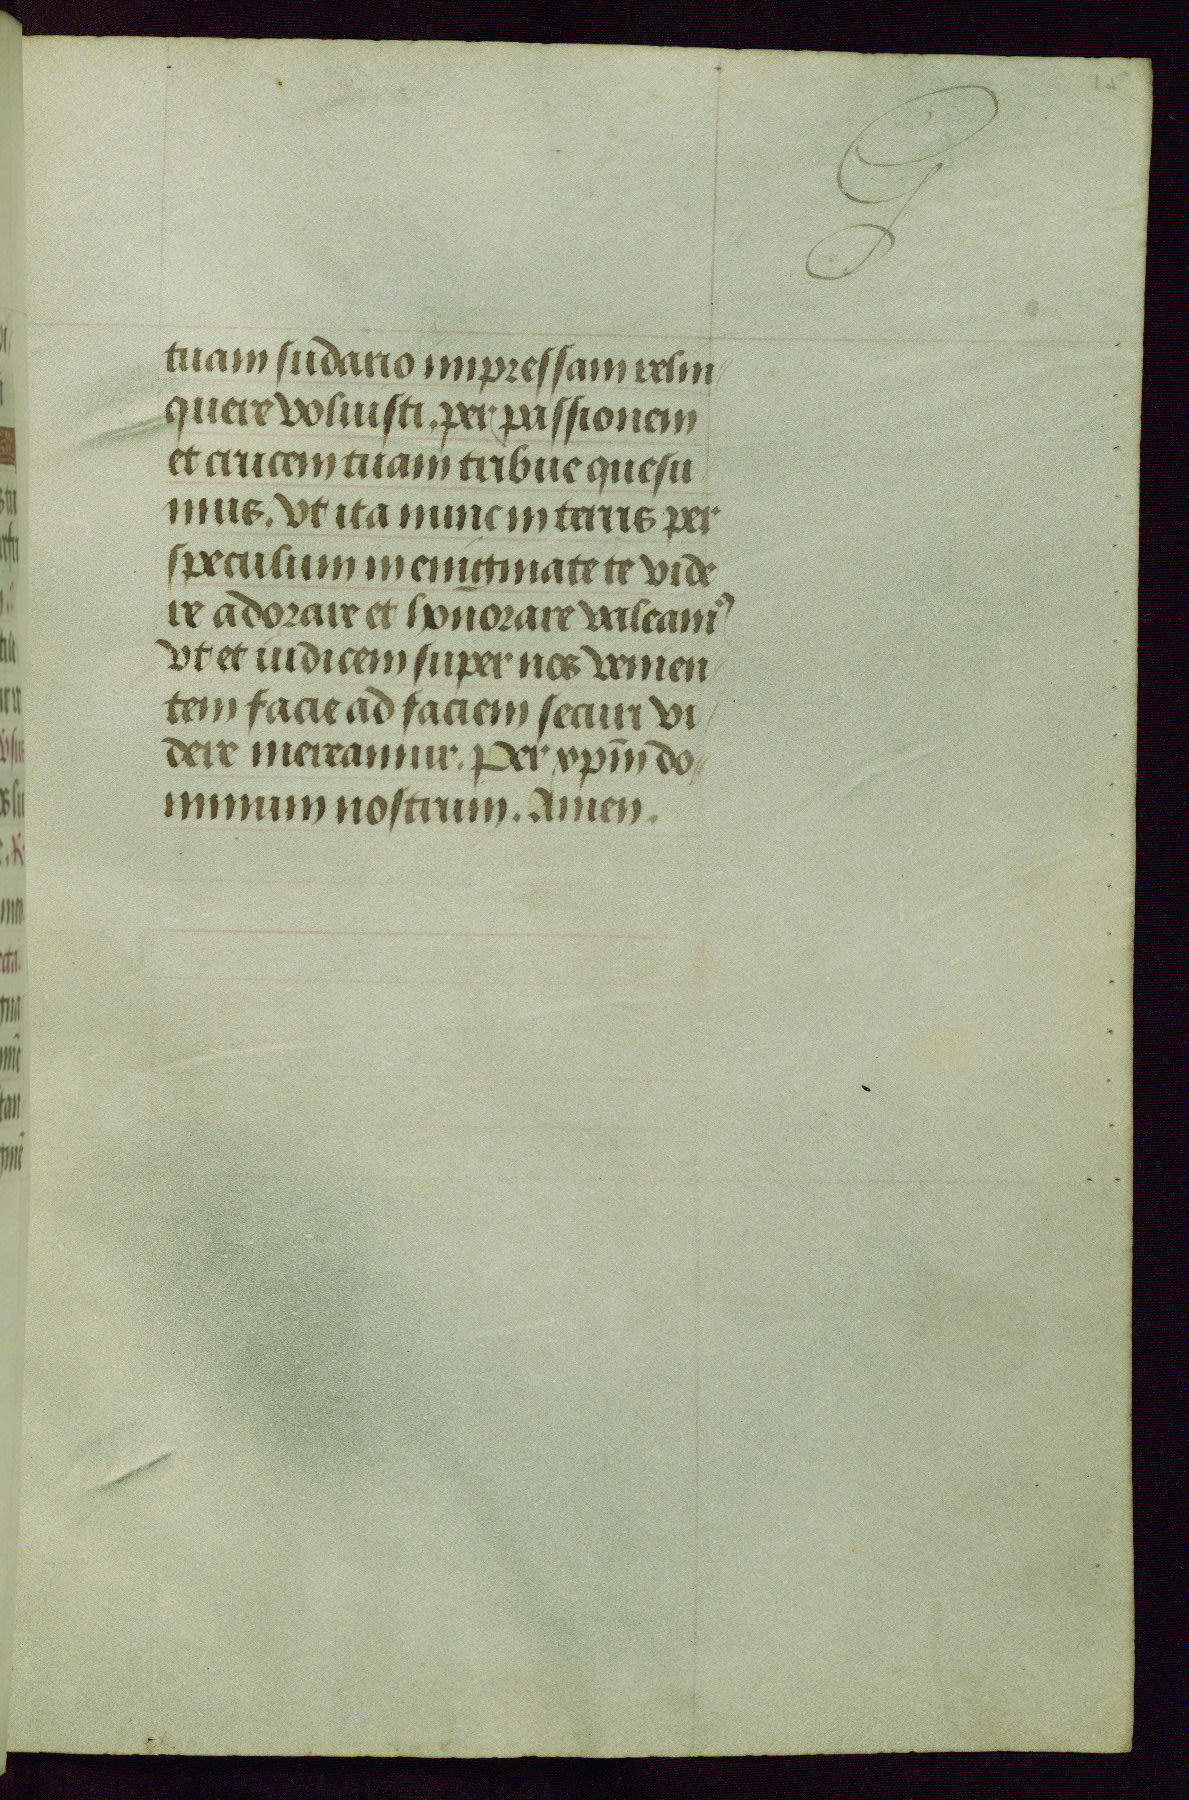 15
G
tuam sudario impressam relin
quere voluisti. per passionem
et crucem tuam tribue quesu
mus. Vt ita nunc in terris per
speculum in enigmate te vide
re adorare et honorare valeamꝰ
Vt et iudicem super nos venien
tem facie ad faciem securi vi
dere mereamur. Per xp̄m do
minum nostrum. Amen.